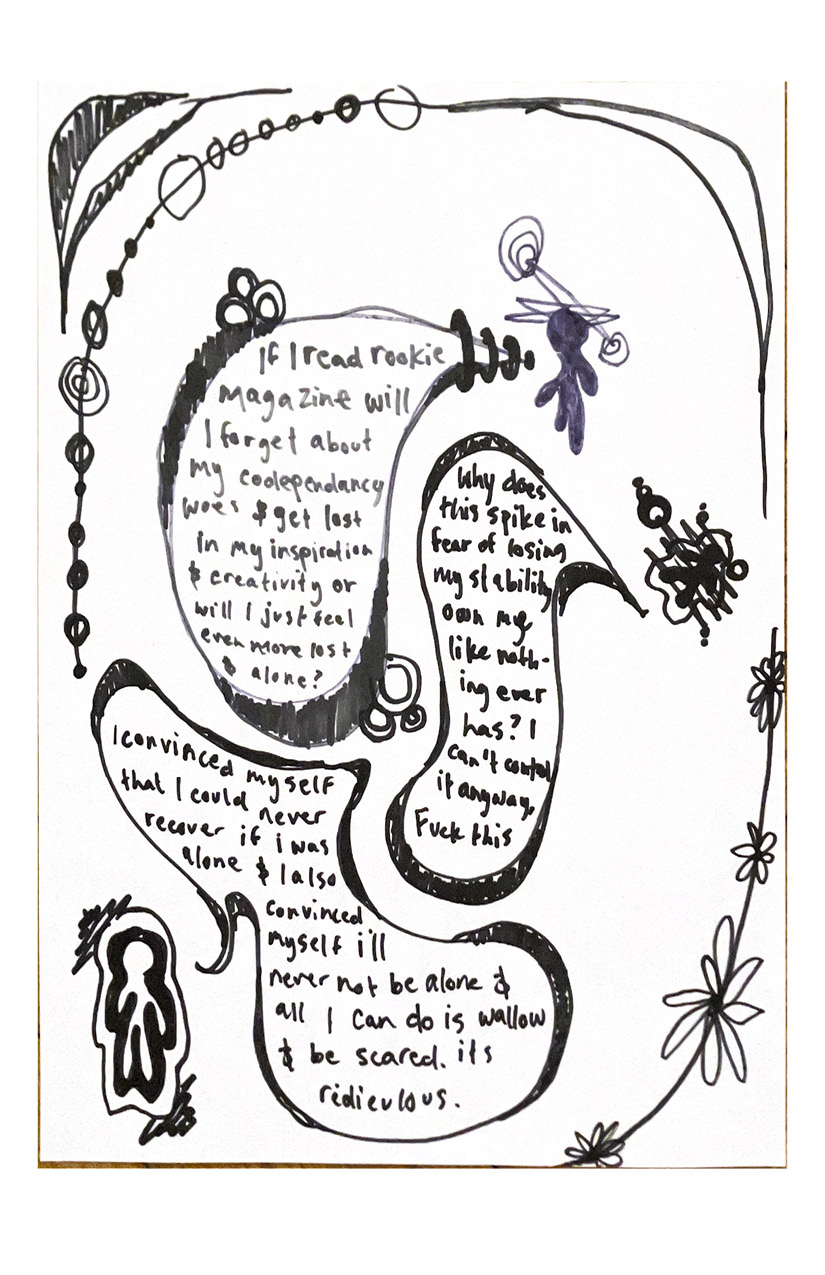 If I read rookie
magazine will
I forget about
my codependancy
woes & get lost
in my inspiration
& creativity or
will I just feel
even more lost
& alone?
Why does
this spike in
fear of losing
my stability
own me
like noth-
ing ever
has? I
can't control
it anyway.
Fuck this
I convinced myself
that I could never
recover if i was
alone & I also
convinced
myself i'll
never not be alone &
all I can do is wallow
& be scared. its
rediculous.